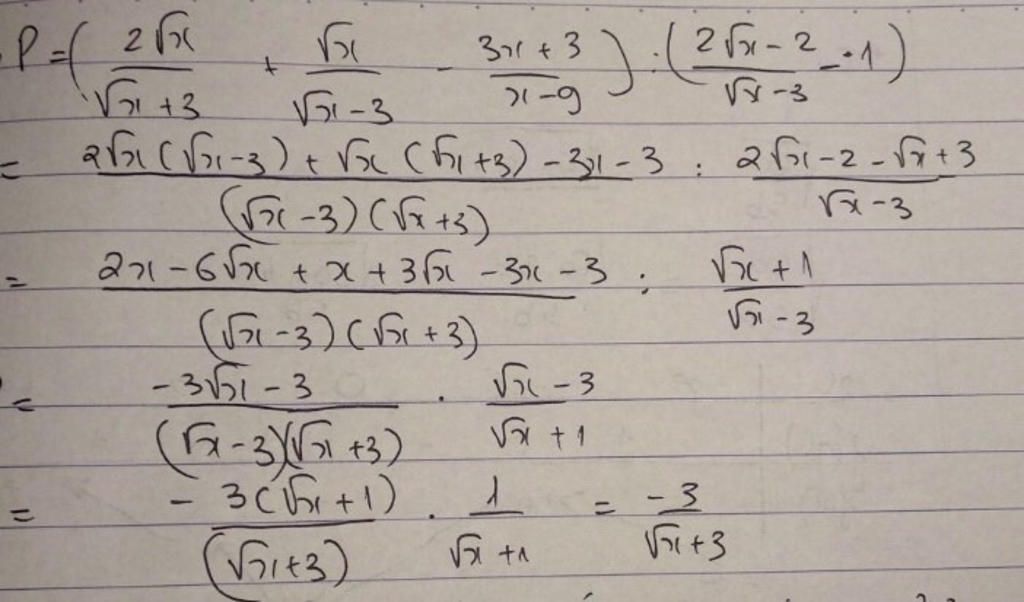 P = ( 2√x / √x + 3 + √x / √x - 3 - 3x + 3 / x - 9 ) : ( 2√x - 2 / √x - 3 - 1 )
= 2√x (√x - 3) + √x (√x + 3) - 3x - 3 / (√x - 3) (√x + 3) : 2√x - 2 - √x + 3 / √x - 3
= 2x - 6√x + x + 3√x - 3x - 3 / (√x - 3) (√x + 3) : √x + 1 / √x - 3
= -3√x - 3 / (√x - 3)(√x + 3) . √x - 3 / √x + 1
= -3(√x + 1) / (√x + 3) . 1 / √x + 1 = -3 / √x + 3